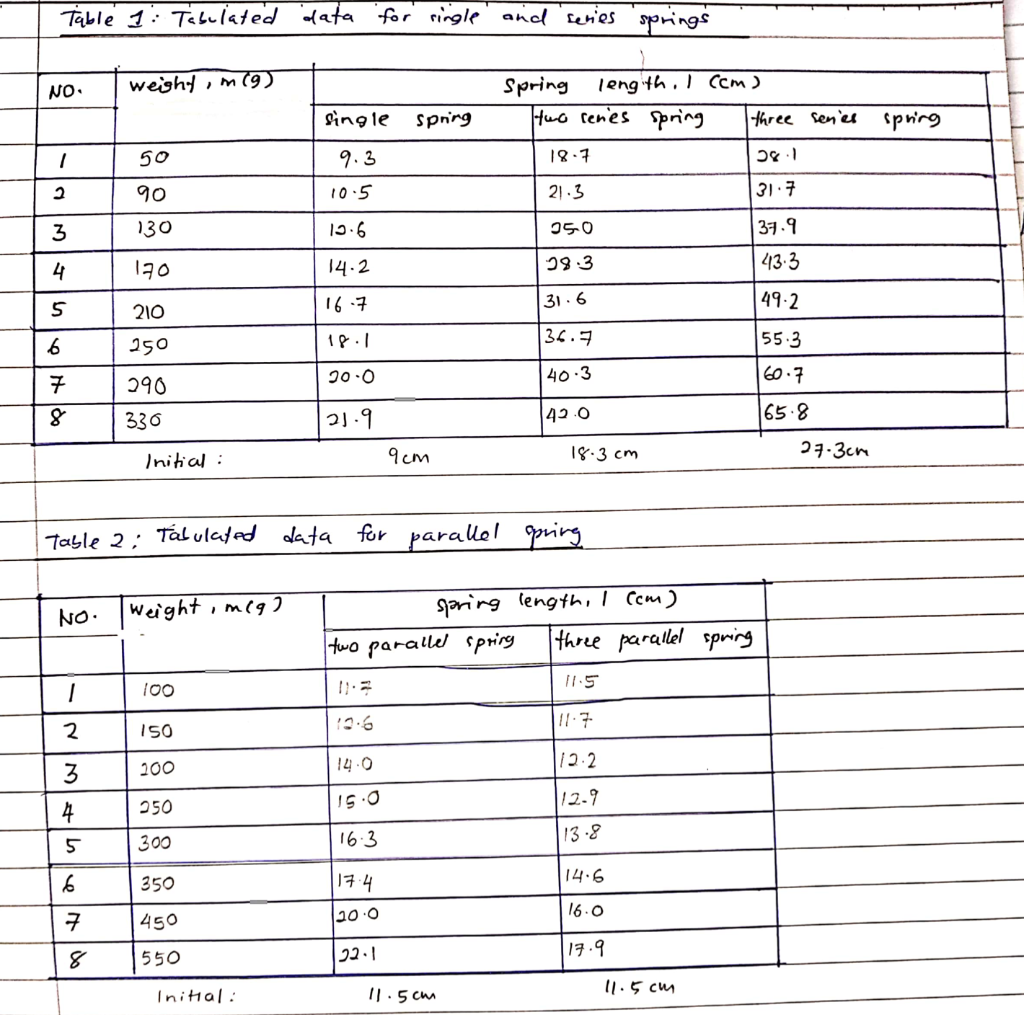 Table 1: Tabulated data for single and series springs
NO. weight, m(g) Spring length, l (cm)
single spring two series spring three series spring
1 50 9.3 18.7 28.1
2 90 10.5 21.3 31.7
3 130 12.6 25.0 37.9
4 170 14.2 28.3 43.3
5 210 16.7 31.6 49.2
6 250 18.1 36.7 55.3
7 290 20.0 40.3 60.7
8 330 21.9 42.0 65.8
Initial: 9cm 18.3 cm 27.3cm
Table 2: Tabulated data for parallel spring
NO. Weight, m(g) spring length, l (cm)
two parallel spring three parallel spring
1 100 11.7 11.5
2 150 12.6 11.7
3 200 14.0 12.2
4 250 15.0 12.9
5 300 16.3 13.8
6 350 17.4 14.6
7 450 20.0 16.0
8 550 22.1 17.9
Initial: 11.5cm 11.5 cm